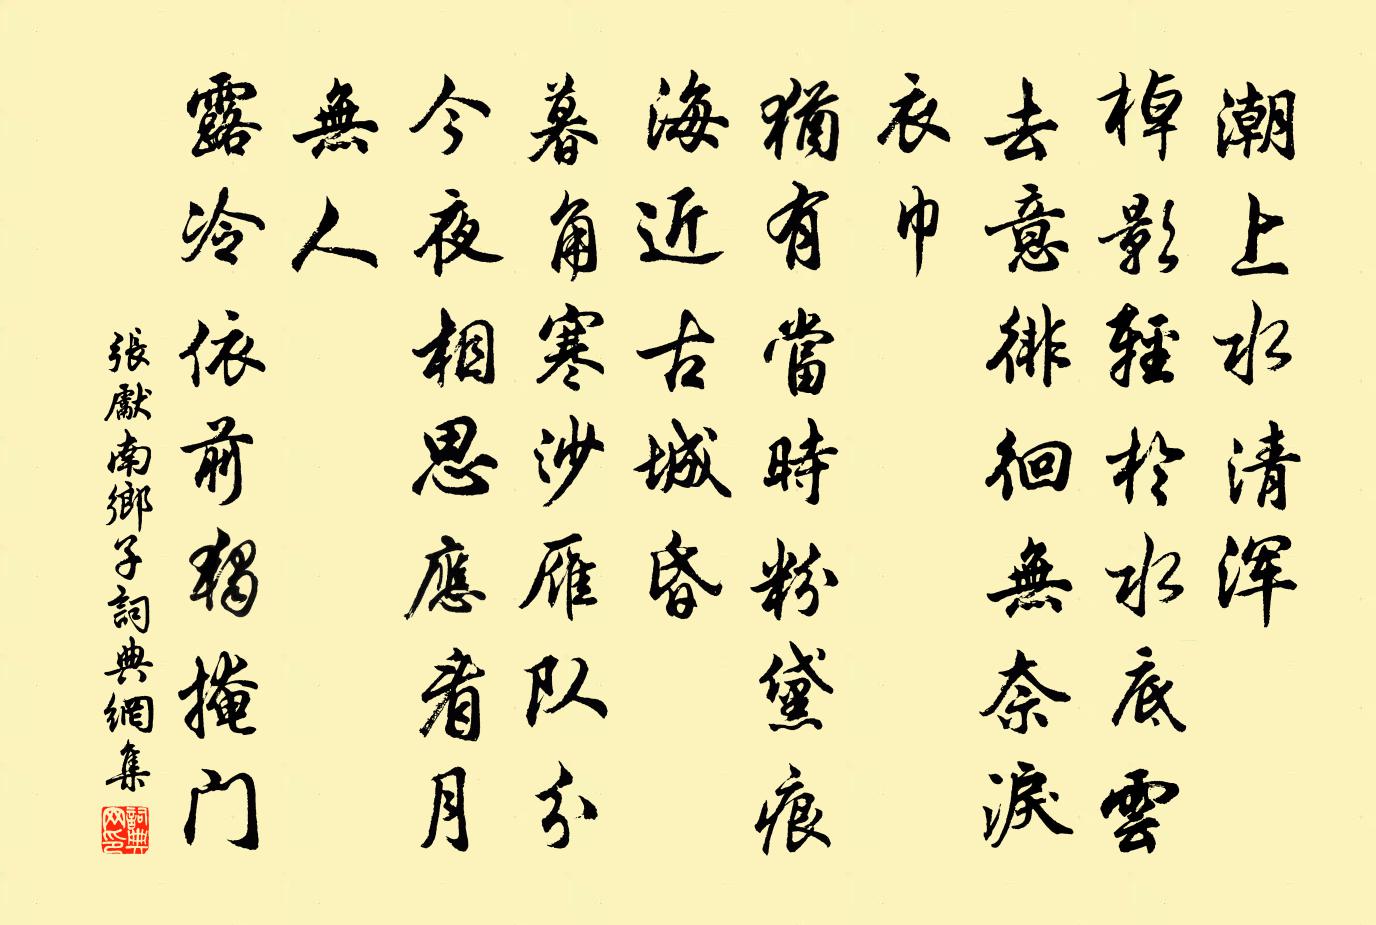 潮上水清渾
棹影輕於水底雲
去意徘徊無奈淚
衣巾
猶有當時粉黛痕
海近古城昏
暮角寒沙雁队分
今夜相思應看月
無人
露冷依前獨掩门
張獻南鄉子詞典網集
詞典网印